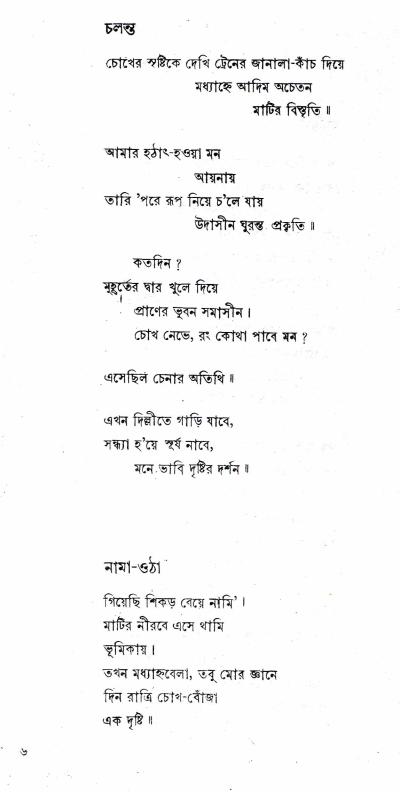 চলন্ত
চোখের সৃষ্টিকে দেখি ট্রেনের জানালা-কাঁচ দিয়ে
মধ্যাহ্নে আদিম অচেতন
মাটির বিস্তৃতি ॥
আমার হঠাৎ-হওয়া মন
আয়নায়
তারি ’পরে রূপ নিয়ে চ’লে যায়
উদাসীন ঘুরন্ত প্রকৃতি ॥
কতদিন ?
মুহূর্তের দ্বার খুলে দিয়ে
প্রাণের ভুবন সমাসীন ।
চোখ নেভে, রং কোথা পাবে মন ?
এসেছিল চেনার অতিথি ॥
এখন দিল্লীতে গাড়ি যাবে,
সন্ধ্যা হ’য়ে সূর্য নাবে,
মনে ভাবি দৃষ্টির দর্শন ॥
নামা-ওঠা
গিয়েছি শিকড় বেয়ে নামি’ ।
মাটির নীরবে এসে থামি
ভূমিকায় ।
তখন মধ্যাহ্নবেলা, তবু মোর জ্ঞানে
দিন রাত্রি চোখ-বোঁজা
এক দৃষ্টি ॥
৬